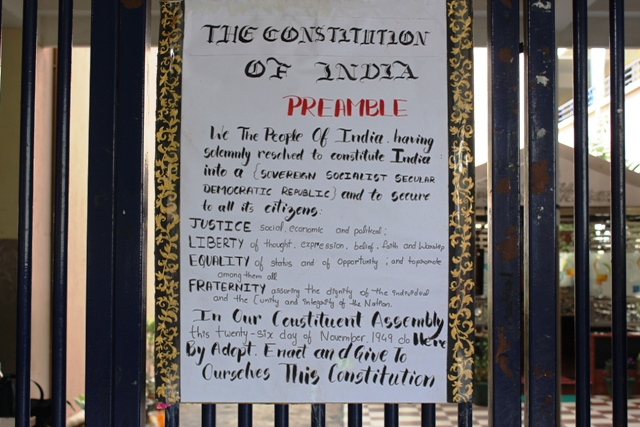 THE CONSTITUTION
OF INDIA
PREAMBLE
We The People Of India, having
solemnly resolved to constitute India
into a {SOVEREIGN SOCIALIST SECULAR
DEMOCRATIC REPUBLIC} and to secure
to all its citizens:
JUSTICE social, economic and political;
LIBERTY of thought, expression, belief, faith and worship
EQUALITY of status and of opportunity; and to promote
among them all
FRATERNITY assuring the dignity of the individual
and the {unity and integrity of the Nation.
In Our Constituent Assembly
this twenty-six day of November, 1949 do Here
By Adopt, Enact and Give To
Ourselves This Constitution